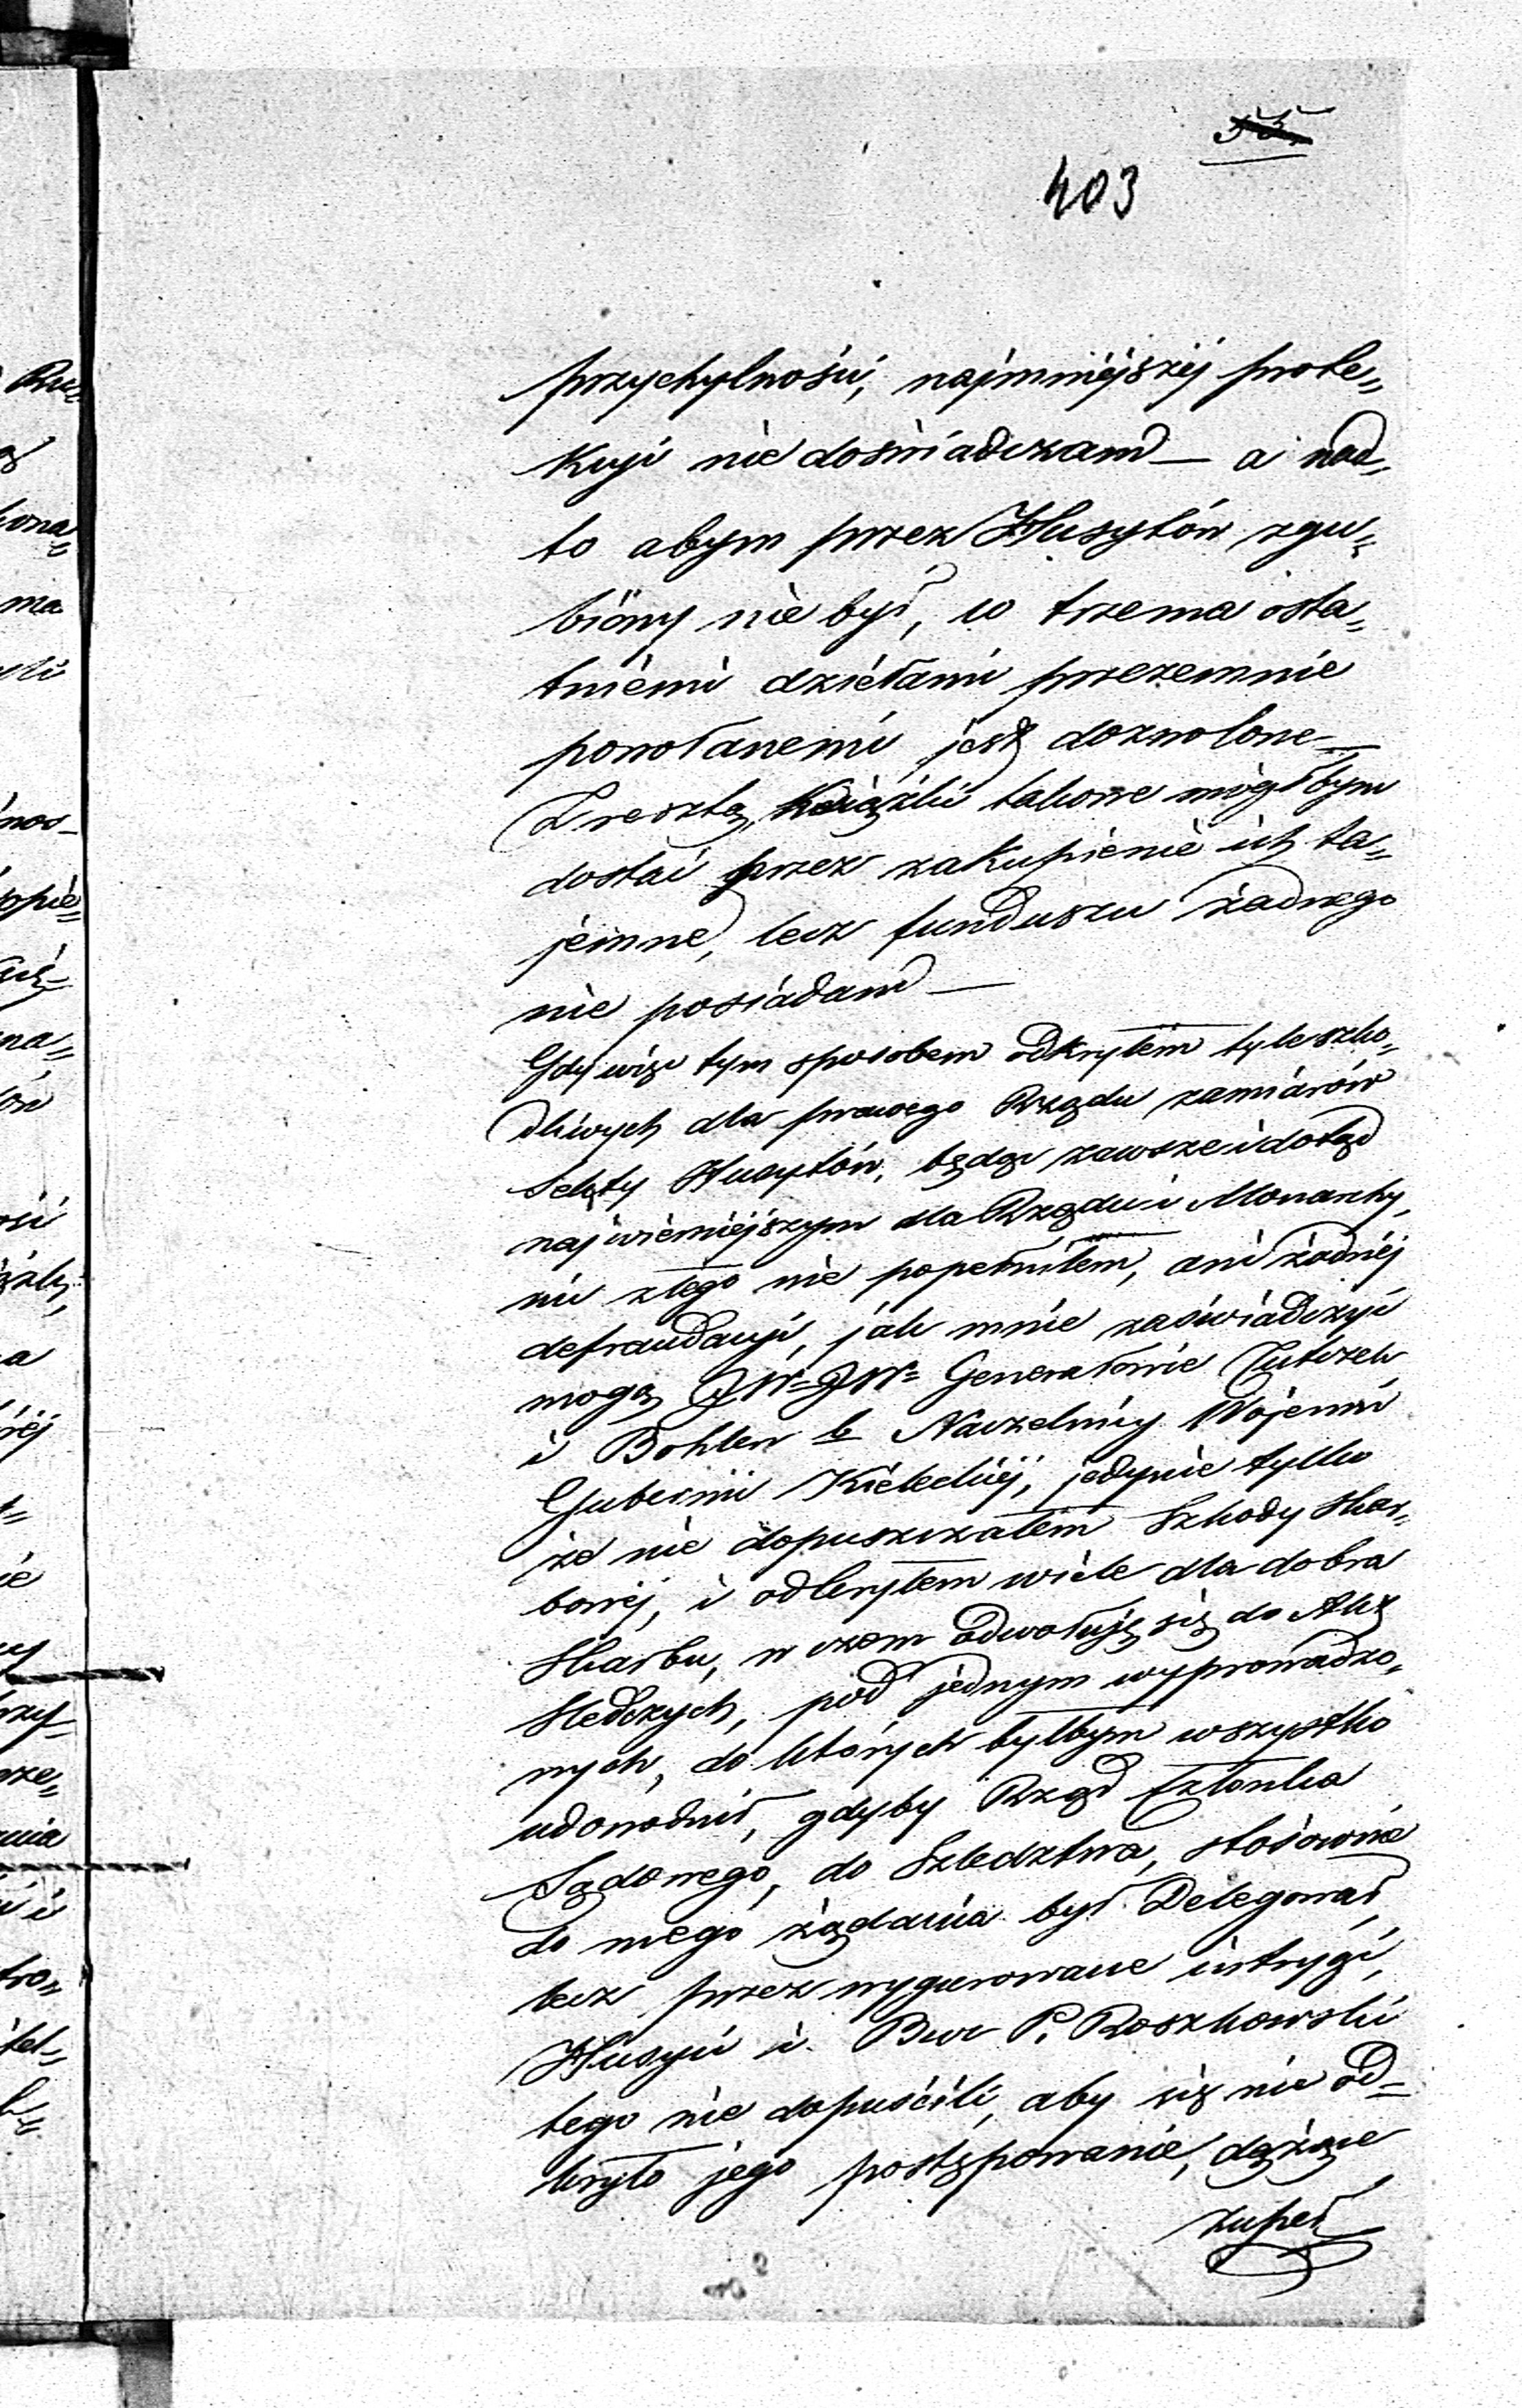 55
403
przychylności, najmniéjszéj prote„
kcyi nie doświadczam — a nad„
to abym przez Husytów zgu„
biony nie był, co trzema osta„
tniemi dziełami przezemnie
powołanemi jest dozwolone —
Zresztą, Książki takowe mógłbym
dostać przez zakupienie ich ta„
jemne, lecz funduszu żadnego
nie posiadam —
Gdy więc tym sposobem odkryłem tyle szko„
dliwych dla prawego Rządu zamiarów
Sekty Husytów, będąc zawsze i dotąd
najwierniéjszym dla Rządu i Monarchy,
nic złego nie popełniłem, ani żadnéj
defraudacyi, jak mnie zaświadczyć
mogą JW= JW= Generałowie
i Bohlen b Naczelnicy Wojenni
Gubernii Kieleckiéj, jedynie tylko
że nie dopuszczałem Szkody Skar„
bowéj, i odkryłem wiele dla dobra
Skarbu, w czem odwołuję się do Akt
Sledczych, pod jednym wyprowadzo„
nych, do których byłbym wszystko
udowodnił, gdyby Rząd Członka
Sądowego, do Szledztwa, stósownie
do mego żądania był Delegował,
lecz przez intrygi,
Husyci i P. Roszkowski
tego nie dopuścili, aby się nie od„
kryło jego postępowanie, dążące
zupeł